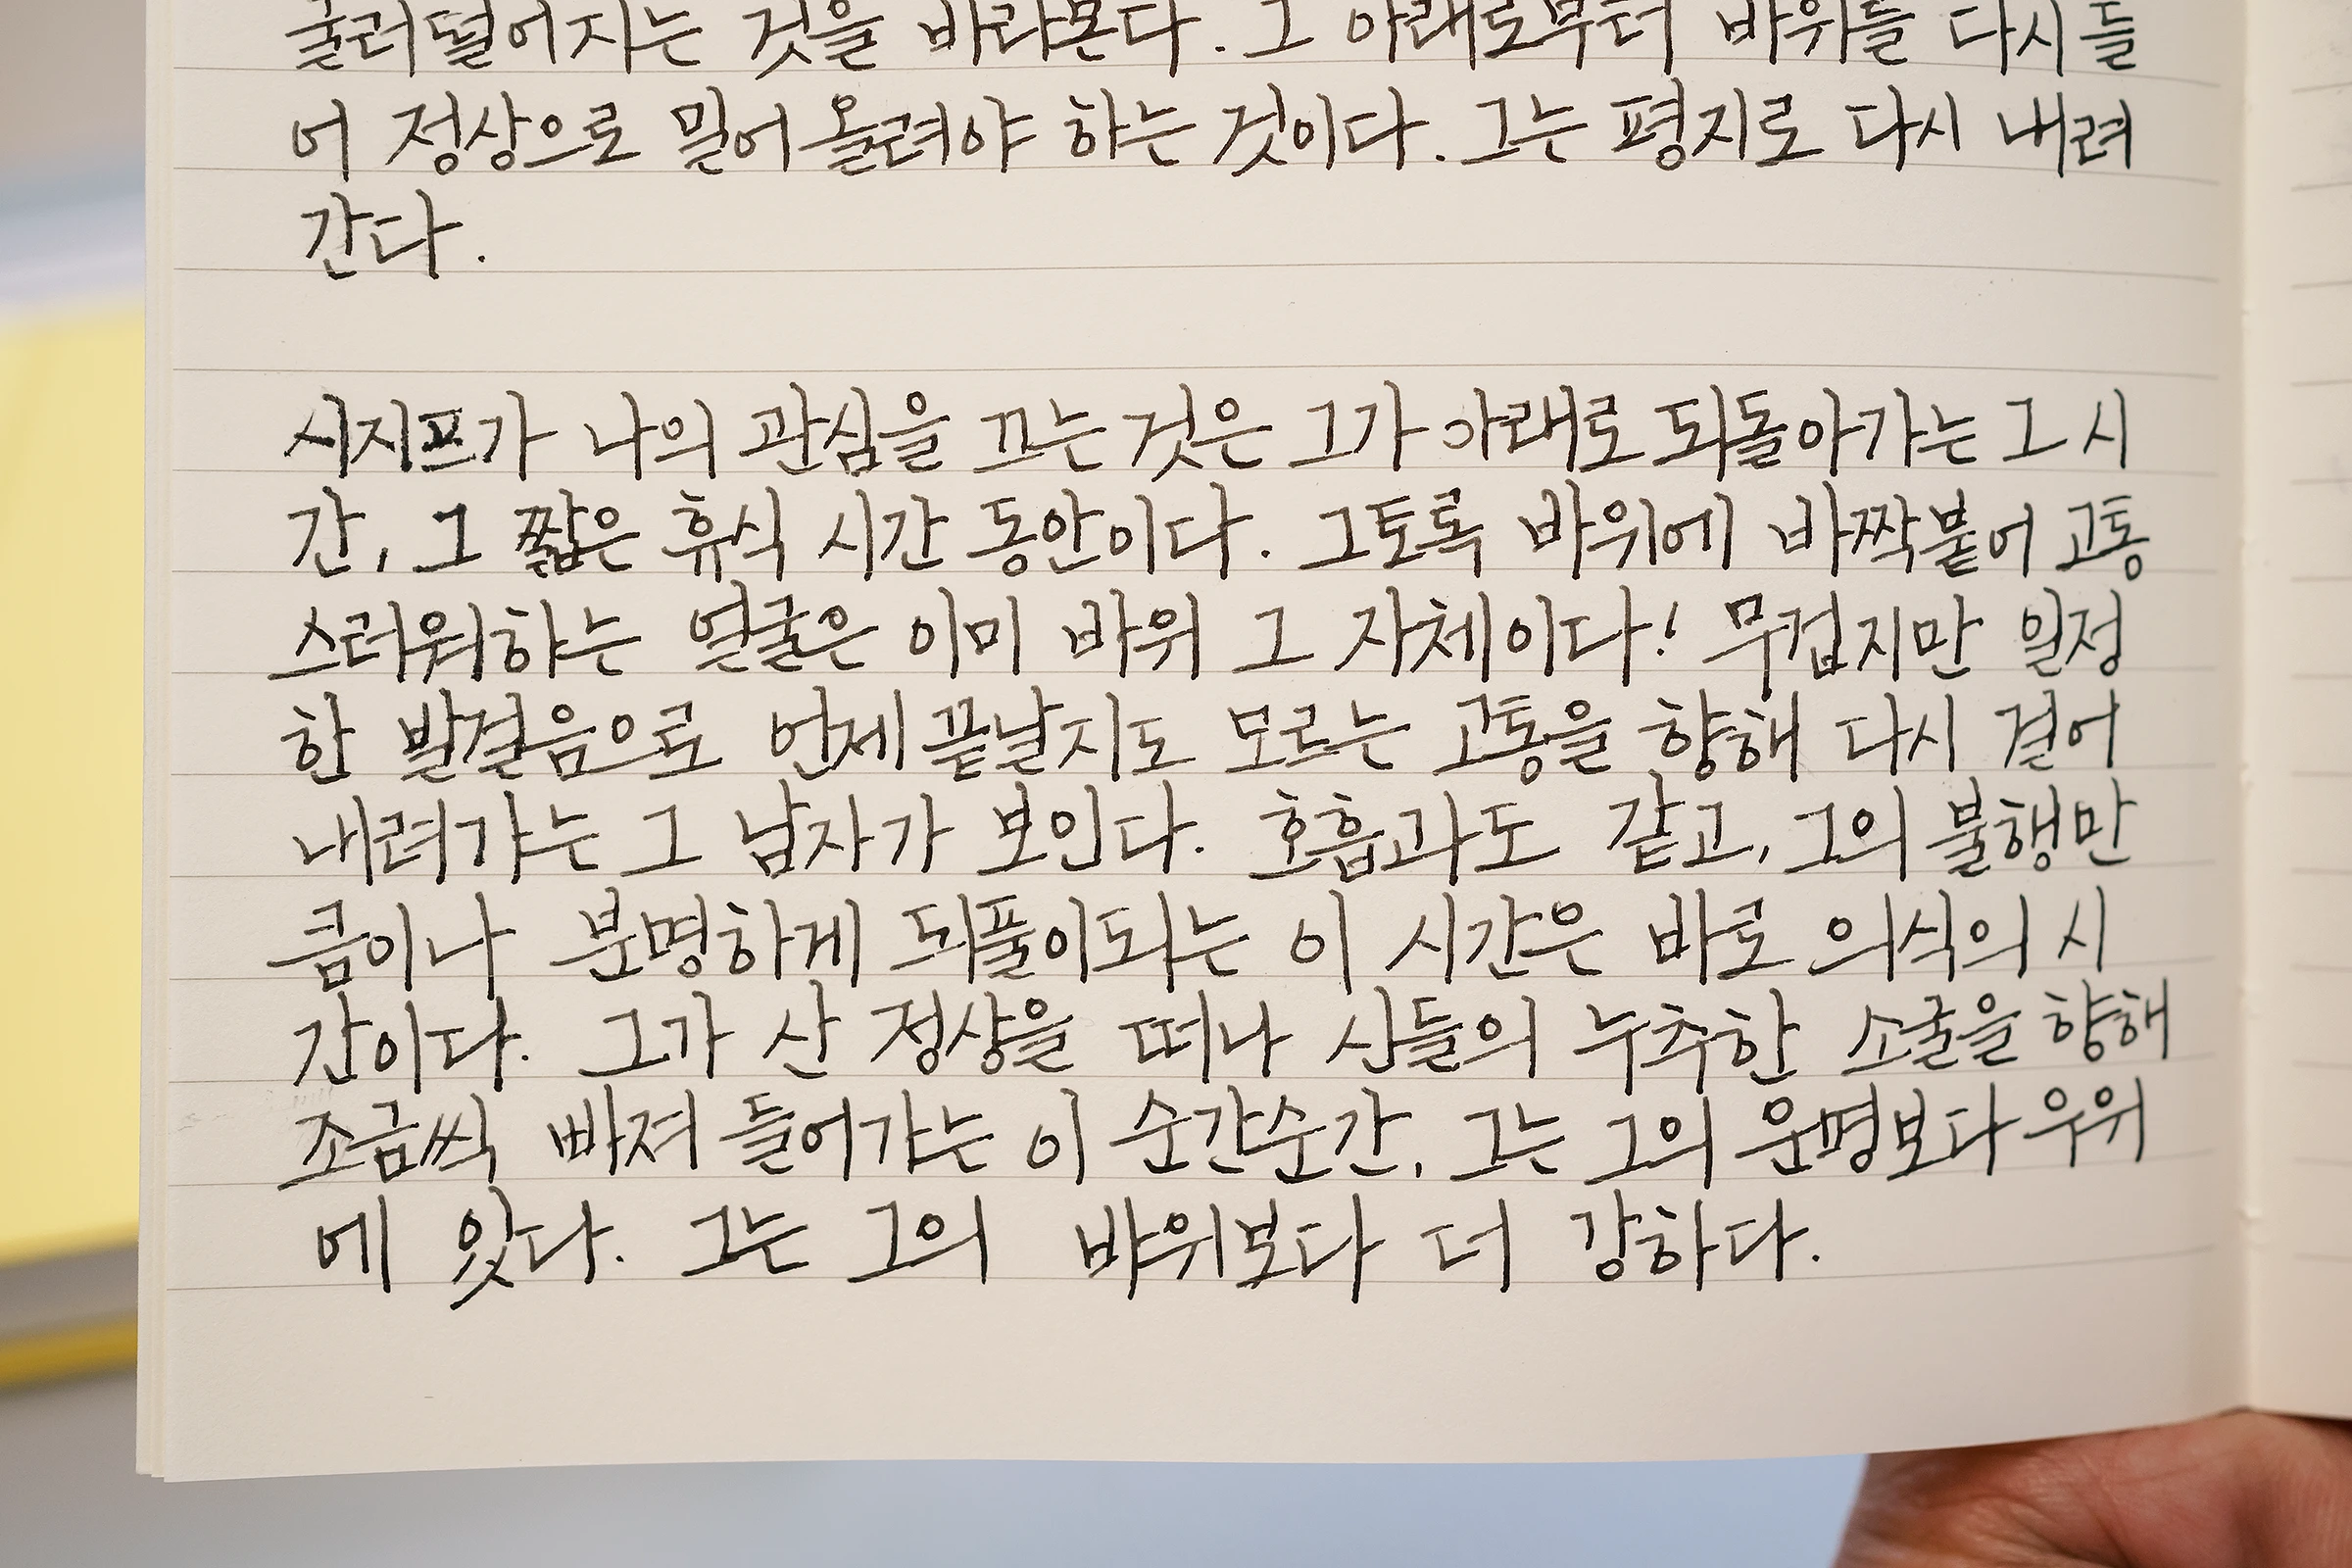 굴러떨어지는 것을 바라본다. 그 아래로부터 바위를 다시 들
어 정상으로 밀어올려야 하는 것이다. 그는 평지로 다시 내려
간다.
시지프가 나의 관심을 끄는 것은 그가 아래로 되돌아가는 그 시
간, 그 짧은 휴식 시간 동안이다. 그토록 바위에 바짝붙어 고통
스러워하는 얼굴은 이미 바위 그 자체이다! 무겁지만 일정
한 발걸음으로 언제 끝날지도 모르는 고통을 향해 다시 걸어
내려가는 그 남자가 보인다. 호흡과도 같고, 그의 불행만
큼이나 분명하게 되풀이되는 이 시간은 바로 의식의 시
간이다. 그가 산 정상을 떠나 신들의 누추한 소굴을 향해
조금씩 빠져 들어가는 이 순간순간, 그는 그의 운명보다 우위
에 있다. 그는 그의 바위보다 더 강하다.